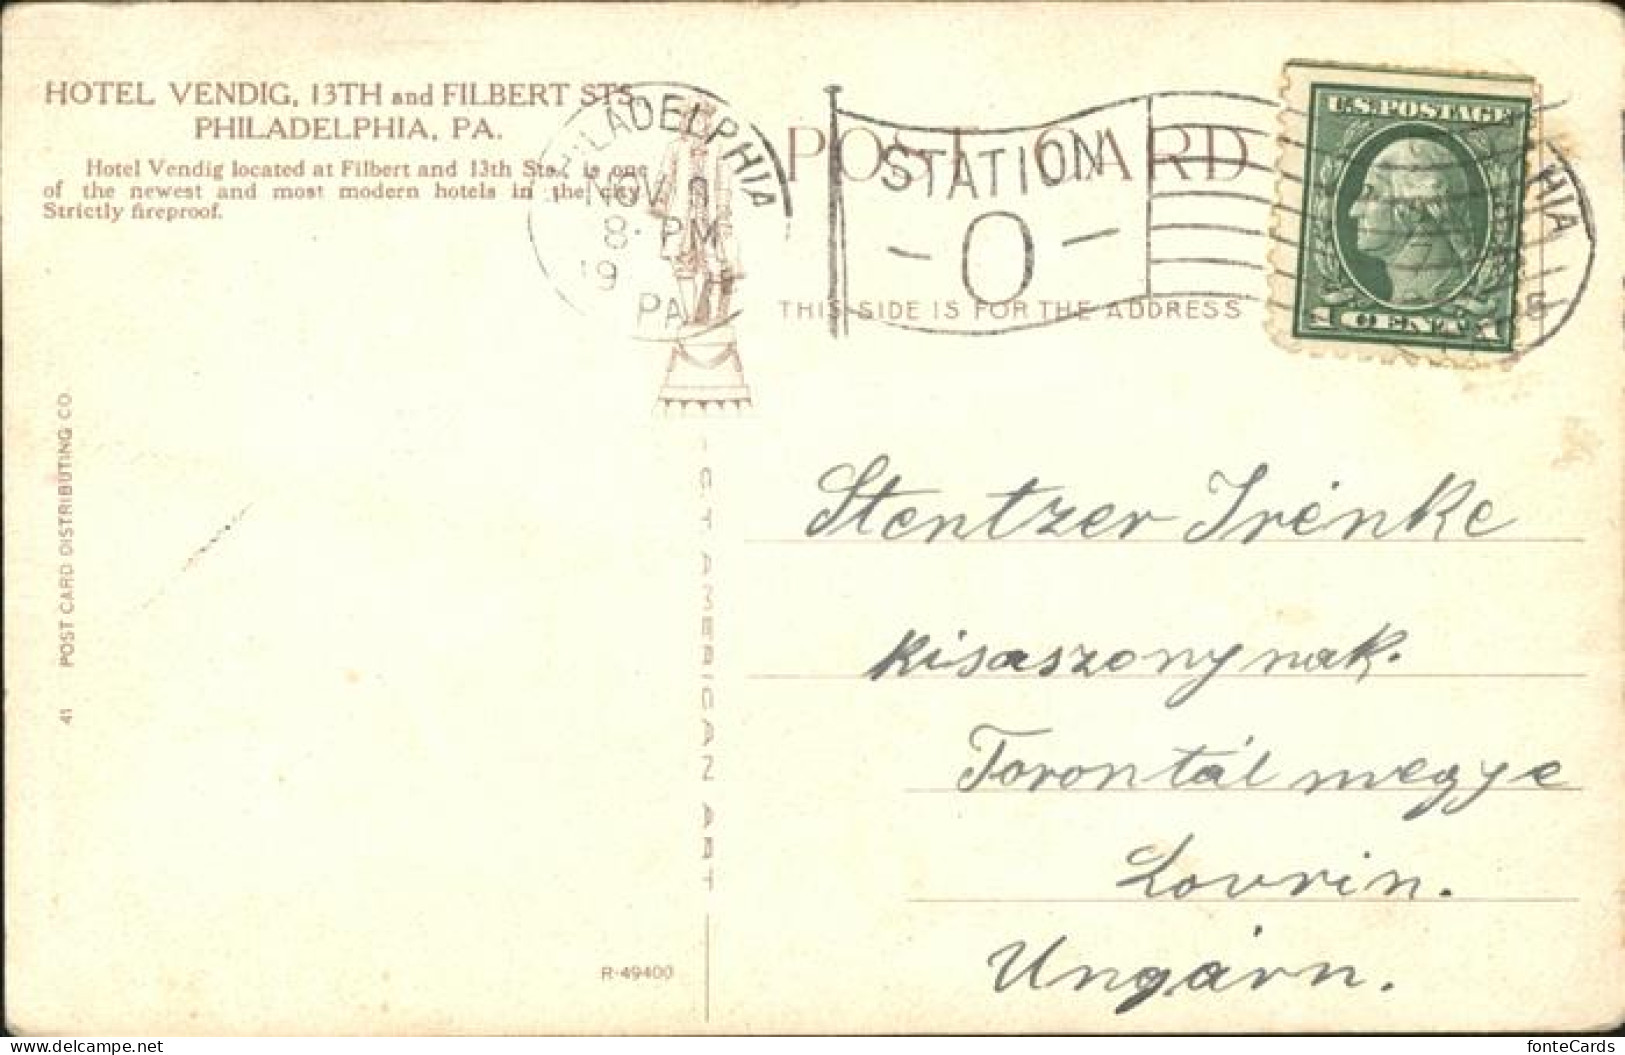 HOTEL VENDIG, 13TH and FILBERT STS.
PHILADELPHIA, PA.
Hotel Vendig located at Filbert and 13th Sts. is one
of the newest and most modern hotels in the city
Strictly fireproof.
PHILADELPHIA
NOV
8. PM
19
PA
POST CARD
STATION
- O -
THIS SIDE IS FOR THE ADDRESS
U.S. POSTAGE
1 CENT 1
41 POST CARD DISTRIBUTING CO.
AMERICAN ART
R-49400
Stentzer Irénke
kisaszonynak.
Torontál megye
Lovrin.
Ungárn.
www.delcampe.net
fonteCards